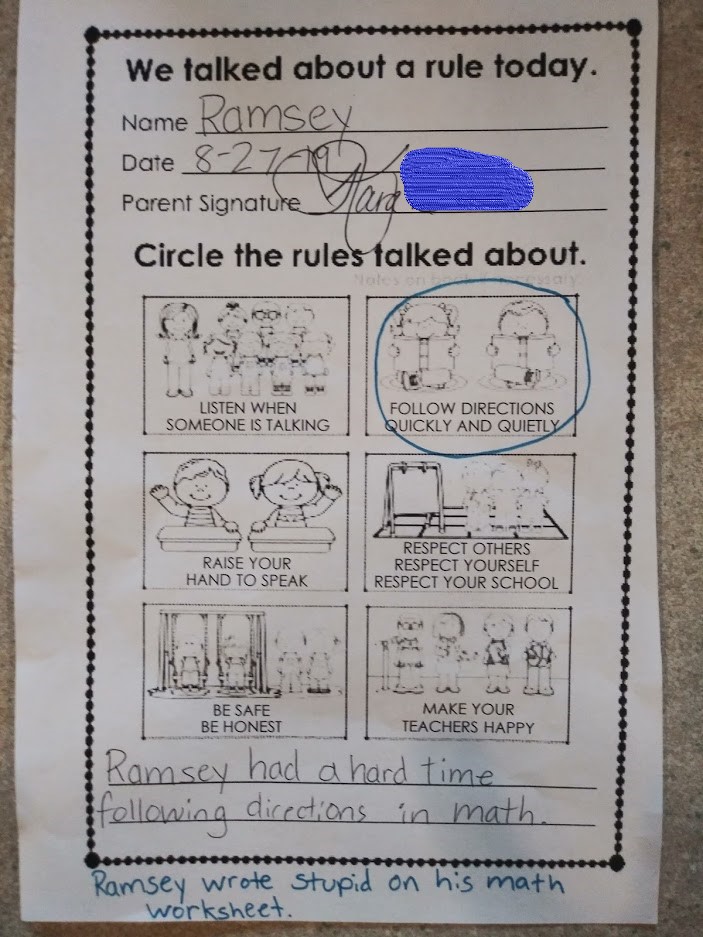 We talked about a rule today.
Name Ramsey
Date 8-27-19
Parent Signature
Circle the rules talked about.
LISTEN WHEN
SOMEONE IS TALKING
FOLLOW DIRECTIONS
QUICKLY AND QUIETLY
RAISE YOUR
HAND TO SPEAK
RESPECT OTHERS
RESPECT YOURSELF
RESPECT YOUR SCHOOL
BE SAFE
BE HONEST
MAKE YOUR
TEACHERS HAPPY
Ramsey had a hard time
following directions in math.
Ramsey wrote stupid on his math
worksheet.